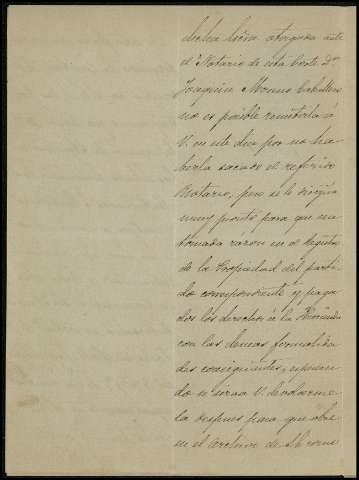 dicha hoina otorgada ante
el Notario de esta Corte Dn.
Joaquin Moreno Caballero
no es posible remitirla á
V. en este dia por no ha-
berla sacado el referido
Notario, pero se le dirigirá
muy pronto para que sea
tomada razon en el Registro
de la Propiedad del parti-
do correspondiente y paga-
dos los derechos á la Hacienda
con las demas formalida-
des consiguientes, esperan-
do se sirva V. devolverme-
la despues para que obre
en el Archivo de